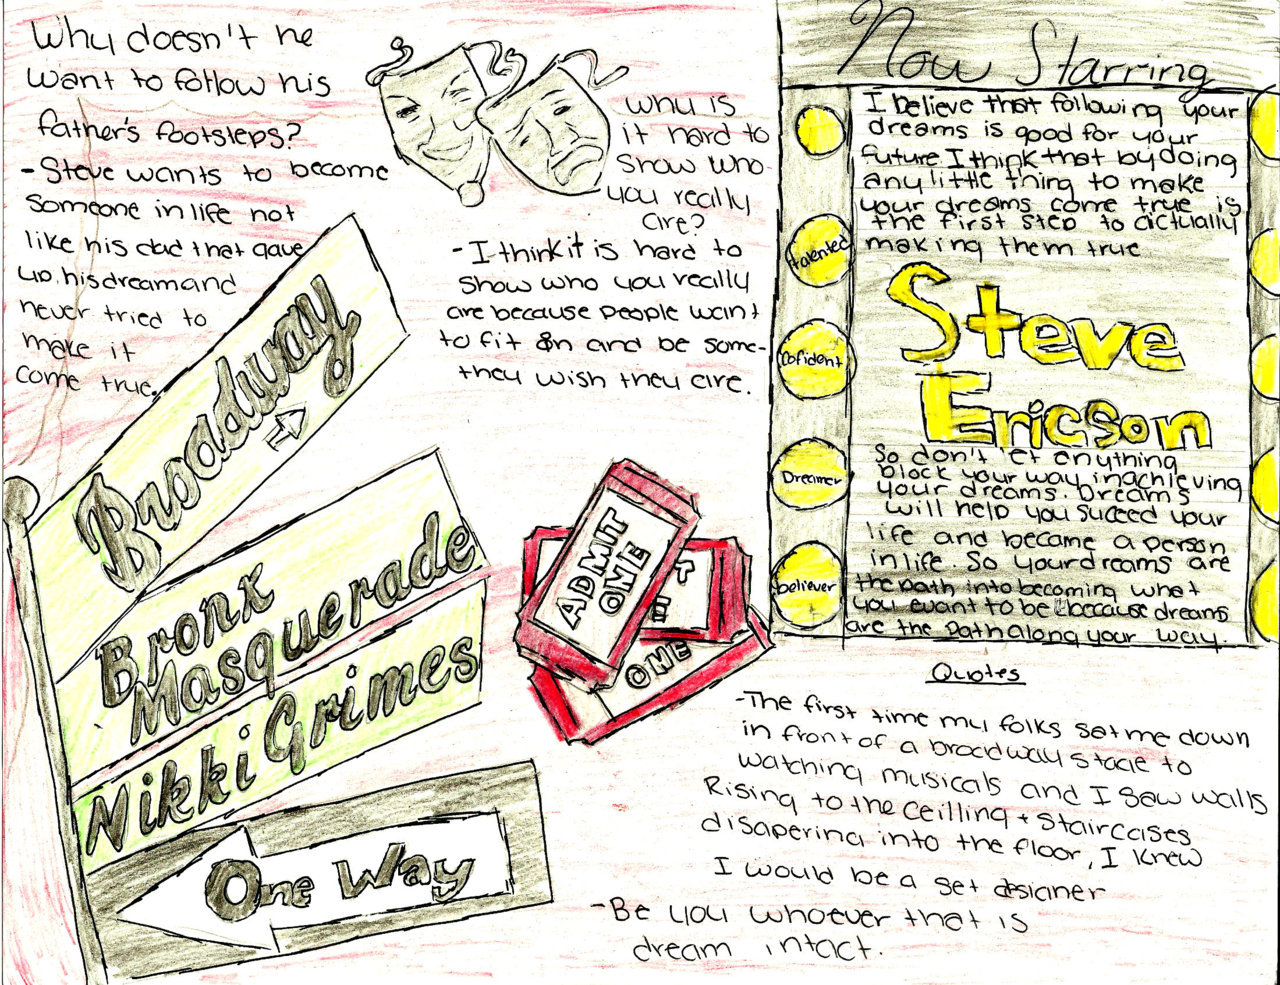 Why doesn't he
want to follow his
father's footsteps?
- Steve wants to become
someone in life not
like his dad that gave
up his dream and
never tried to
make it
come true.
Why is
it hard to
show who
you really
are?
- I think it is hard to
show who you really
are because people want
to fit in and be some-
they wish they are.
Now Starring
I believe that following your
dreams is good for your
future I think that by doing
any little thing to make
your dreams come true is
the first step to actually
making them true
Steve
Ericson
So don't let anything
block your way in achieving
your dreams. Dreams
will help you succeed your
life and became a person
in life. So your dreams are
the path into becoming what
you want to be because dreams
are the path along your way.
talented
Cofident
Dreamer
believer
Broadway
Bronx
Masquerade
Nikki Grimes
One Way
ADMIT
ONE
T
E
ONE
Quotes
- The first time my folks set me down
in front of a broadway stage to
watching musicals and I saw walls
Rising to the ceilling + staircases
disapering into the floor, I knew
I would be a set designer
- Be you whoever that is
dream intact.